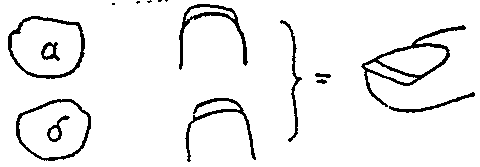 а
б
} =